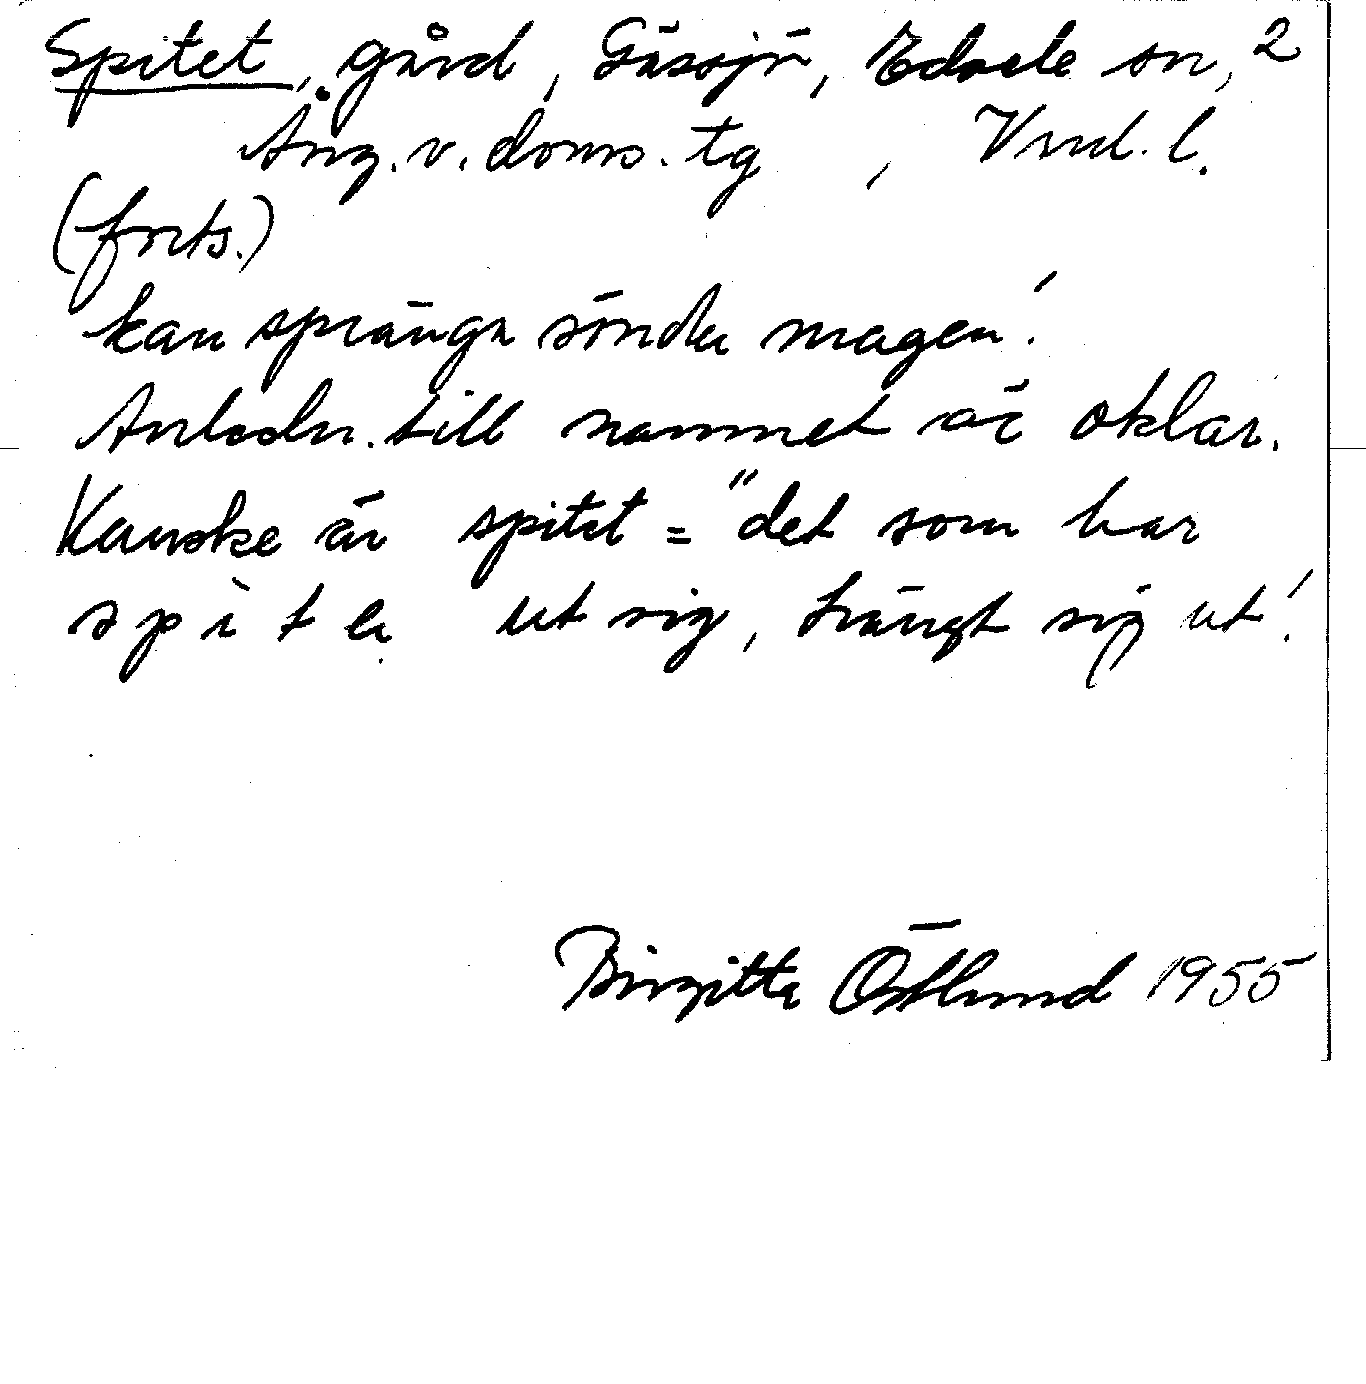 Spitet, gård, Gåssjö, Edsele sn, 2
Ång. v. doms. tg, Vnd. l.
(forts.)
kan spränga sönder magen!
Anledn. till namnet är oklar.
Kanske är spitet = "det som har
spita ut sig, trängt sig ut!
Birgitta Östlund 1955